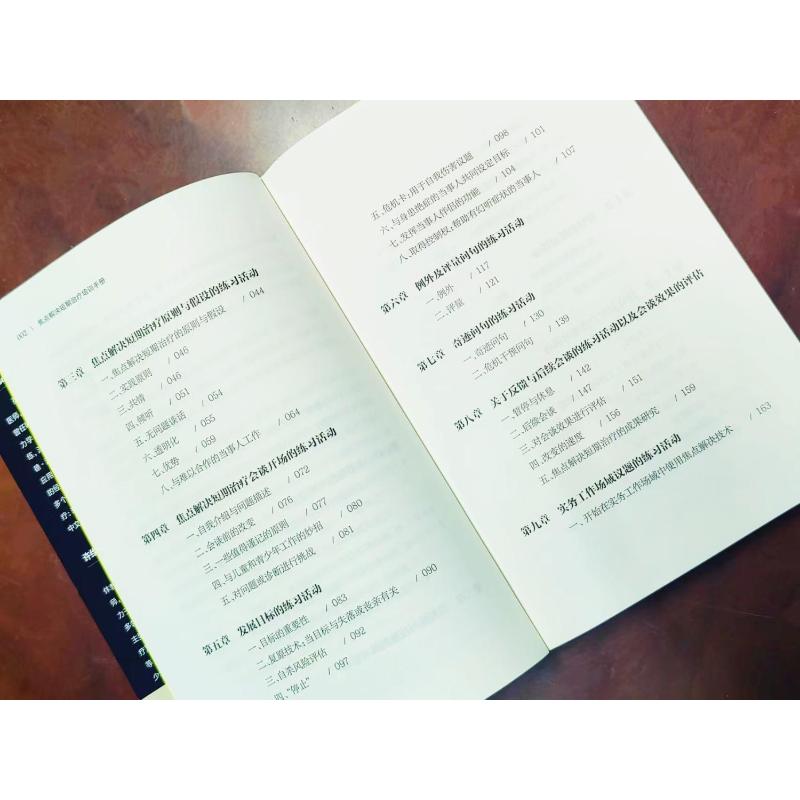 002 | 焦点解决短期治疗培训手册
第三章 焦点解决短期治疗原则与假设的练习活动
一、焦点解决短期治疗的原则与假设 / 044
二、实践原则 / 046
三、共情 / 046
四、倾听 / 051
五、无问题谈话 / 054
六、透明化 / 055
七、优势 / 059
八、与难以合作的当事人工作 / 064
第四章 焦点解决短期治疗会谈开场的练习活动
一、自我介绍与问题描述 / 072
二、会谈前的改变 / 076
三、一些值得谨记的原则 / 077
四、与儿童和青少年工作的妙招 / 080
五、对问题或诊断进行挑战 / 081
第五章 发展目标的练习活动
一、目标的重要性 / 083
二、复原技术：当目标与失落或丧亲有关 / 090
三、自杀风险评估 / 092
四、“停止” / 097
五、危机卡：用于自我伤害议题 / 098
六、与身患绝症的当事人共同设定目标 / 101
七、发挥当事人伴侣的功能 / 104
八、取得控制权：帮助有幻听症状的当事人 / 107
第六章 例外及评量问句的练习活动
一、例外 / 117
二、评量 / 121
第七章 奇迹问句的练习活动
一、奇迹问句 / 130
二、危机干预问句 / 139
第八章 关于反馈与后续会谈的练习活动以及会谈效果的评估
一、暂停与休息 / 142
二、后续会谈 / 147
三、对会谈效果进行评估 / 151
四、改变的速度 / 156
五、焦点解决短期治疗的成果研究 / 159
第九章 实务工作场域议题的练习活动
一、开始在实务工作场域中使用焦点解决技术 / 163